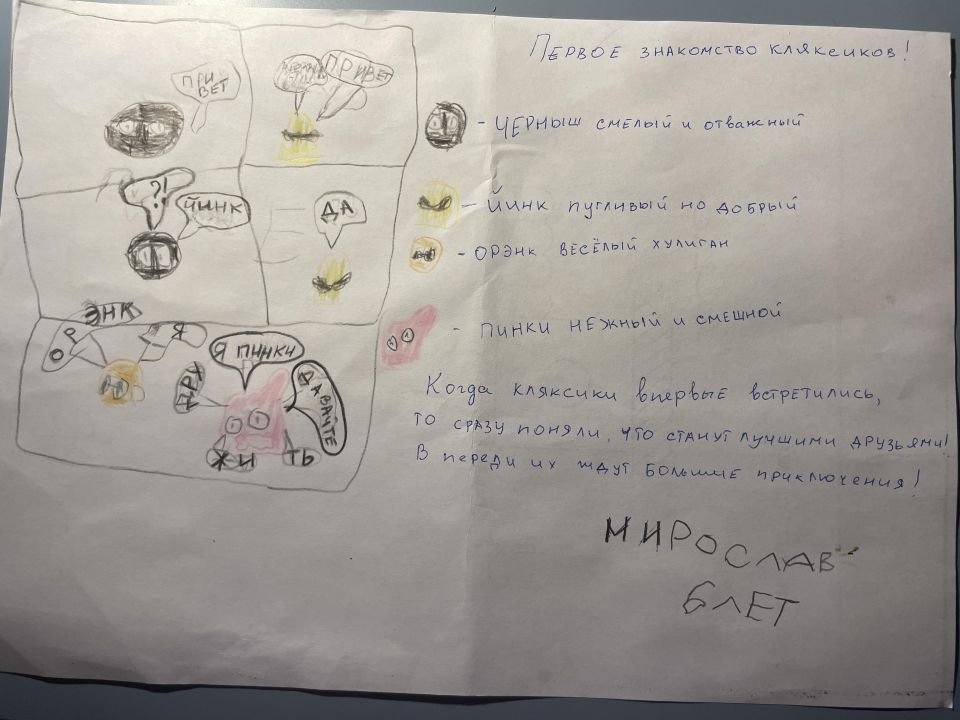 ПРИ
ВЕТ
ПРИВЕТ
?!
ЙИНК
ДА
ОРЭНК
Я
Я ПИНКИ
ДАВАЙТЕ
ДРУ
ЖИТЬ
ПЕРВОЕ ЗНАКОМСТВО КЛЯКСИКОВ!
- ЧЕРНЫШ СМЕЛЫЙ И ОТВАЖНЫЙ
- ЙИНК ПУГЛИВЫЙ НО ДОБРЫЙ
- ОРЭНК ВЕСЁЛЫЙ ХУЛИГАН
- ПИНКИ НЕЖНЫЙ И СМЕШНОЙ
Когда кляксики впервые встретились,
то сразу поняли, что станут лучшими друзьями!
В переди их ждут большие приключения!
МИРОСЛАВ
6 ЛЕТ